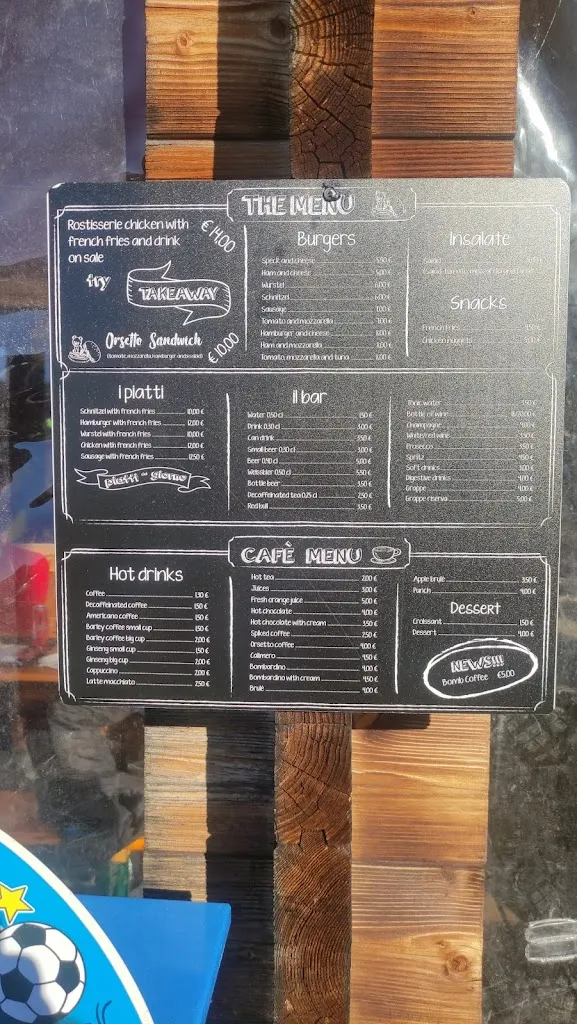 THE MENU
Rostisserie chicken with
french fries and drink
on sale
€ 14.00
try
TAKEAWAY
Orsetto Sandwich
(tomato, mozzarella, hamburger and salad)
€ 10.00
Burgers
Speck and cheese
Ham and cheese
Wurstel
Schnitzel
Sausage
Tomato and mozzarella
Hamburger and cheese
Ham and mozzarella
Tomato, mozzarella and tuna
Insalate
Snacks
French fries
Chicken nuggets
i piatti
Schnitzel with french fries 10,00 €
Hamburger with french fries 12,00 €
Wurstel with french fries 10,00 €
Chicken with french fries 12,00 €
Sausage with french fries 12,50 €
piatti del giorno
il bar
Water 0,50 cl 1,50 €
Drink 0,30 cl 3,00 €
Can drink 3,50 €
Small beer 0,30 cl 3,00 €
Beer 0,40 cl 5,00 €
Weissbier 0,50 cl 5,50 €
Bottle beer 3,50 €
Decaffeinated tea 0,25 cl 2,50 €
Red bull 3,50 €
Tonic water 3,50 €
Bottle of wine
Champagne
White/red wine
Prosecco
Spritz
Soft drinks 3,00 €
Digestive drinks 4,00 €
Grappe 4,00 €
Grappe riserva 5,00 €
CAFÈ MENU
Hot drinks
Coffee 1,30 €
Decaffeinated coffee 1,50 €
Americano coffee 1,50 €
Barley coffee small cup 1,50 €
Barley coffee big cup 2,00 €
Ginseng small cup 1,50 €
Ginseng big cup 2,00 €
Cappuccino 2,00 €
Latte macchiato 2,50 €
Hot tea 2,00 €
Juices 3,00 €
Fresh orange juice 5,00 €
Hot chocolate 4,00 €
Hot chocolate with cream 3,50 €
Spiked coffee 2,50 €
Orsetto coffee 4,00 €
Calimero 4,50 €
Bombardino 4,00 €
Bombardino with cream 4,50 €
Brulè 4,00 €
Apple brulè 3,50 €
Punch 4,00 €
Dessert
Croissant 1,50 €
Dessert 4,00 €
NEWS!!!
Bomb Coffee €5,00